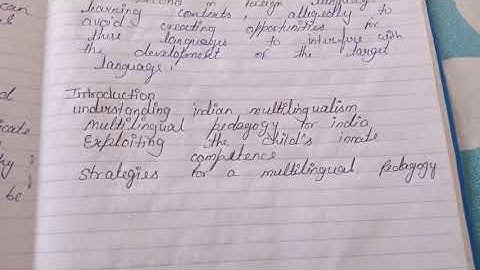 can
learning contexts, allegedly to
avoid creating opportunities for
these languages to interfere with
the development of the target
language.
Introduction
understanding indian multilingualism
multilingual pedagogy for india
Exploiting the child's innate
competence
strategies for a multilingual pedagogy
be